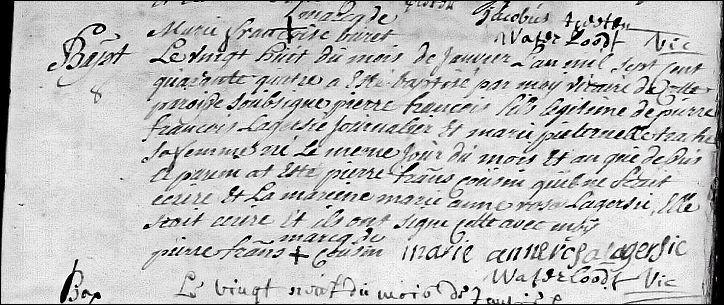 marcq de Jacobus
Marie francoise buret Waterloodt Vic
Bapt Le vingt huit du mois de Janvier L'an mil sept cent
8 quarante quatre a Este baptisé par moy vicaire de Cette
paroise soubsigné pierre francois fils Legitime de pierre
francois Lagersie Journalier Et marie petternelle
sa femme né Le meme Jour du mois Et an que dessus
Le parein at Esté pierre frans cousin qui ne scait
ecrire Et La mareine marie anne rose Lagersie, Elle
scait ecrire Et ils ont signé Cette avec moÿ
marcq de
pierre frans + Cousin marie anne rosa lagersie
Waterloodt Vic
Bap Le vingt neuf du mois de Janvier